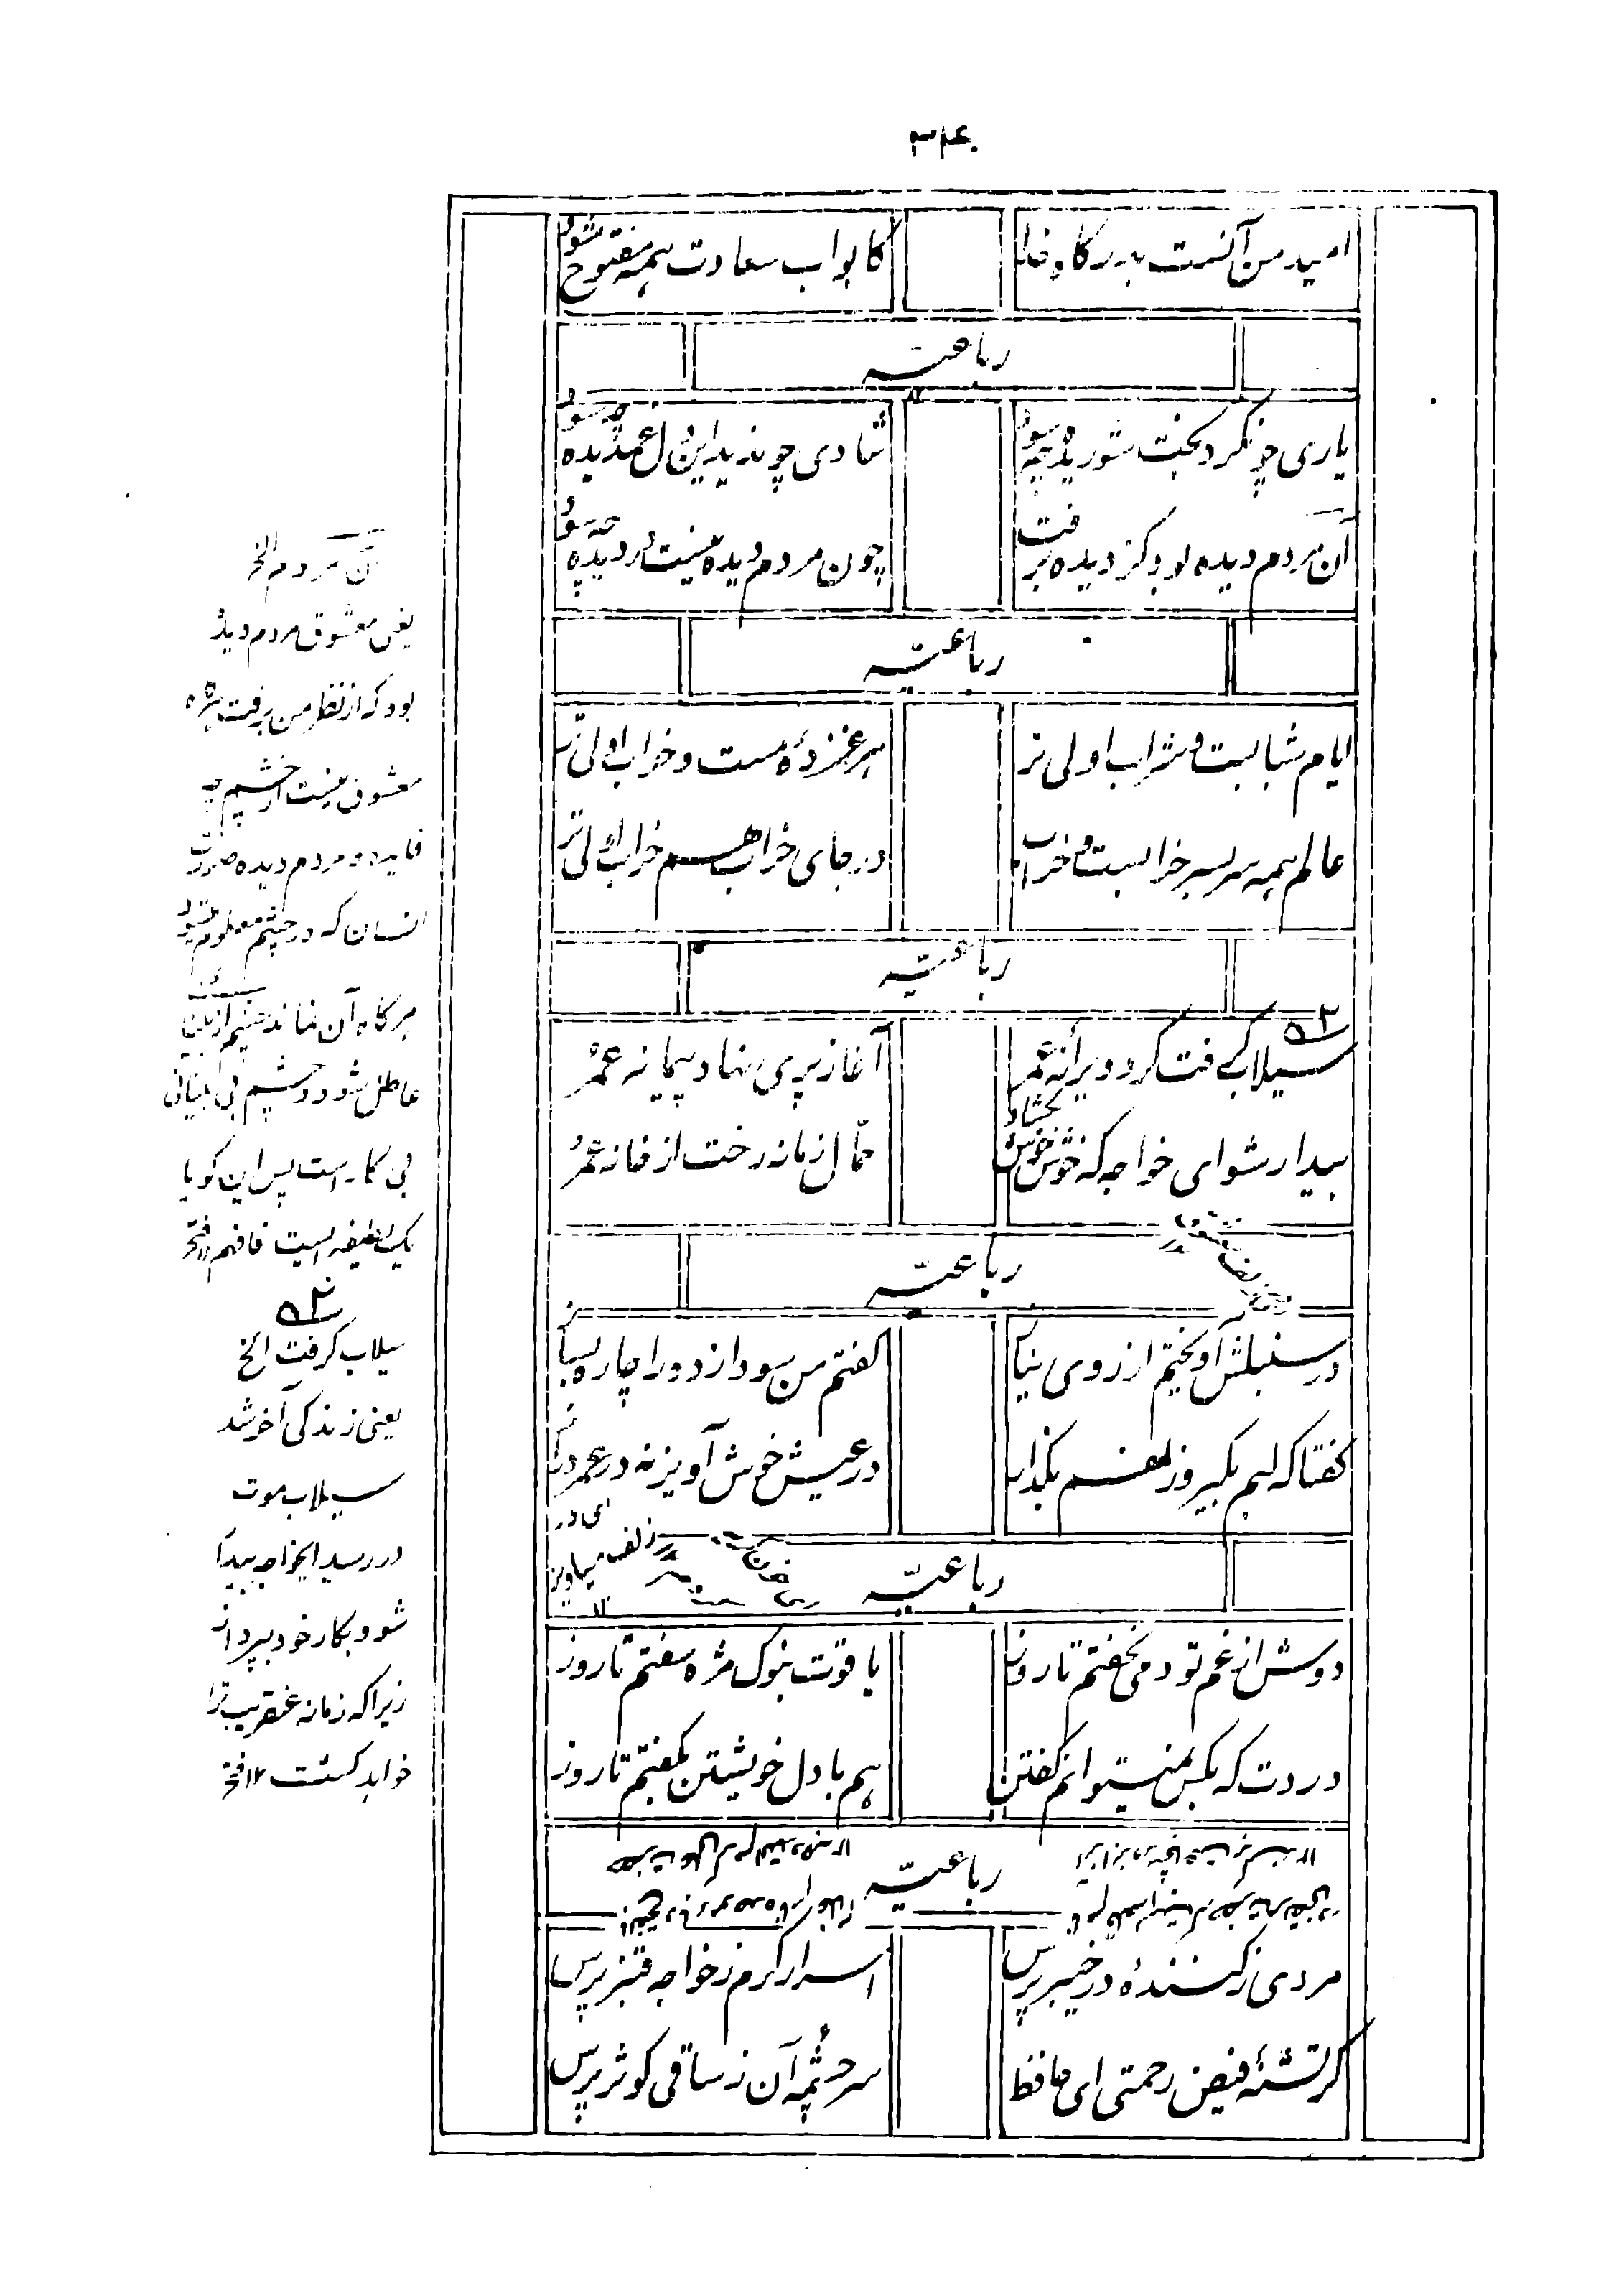 ۳۴۰
امید من آنست بدرگاه خدا کابواب سعادت همه مفتوح شود
رباعیه
یاری چو نکرد بخت شوریده چه سود شادی چو ندید این دل غمدیده چه سود
آن مردم دیده بود کز دیده برفت چون مردم دیده نیست در دیده چه سود
رباعیه
ایام شبابست و شراب اولی‌تر هر غمزدهٔ مست و خراب اولی‌تر
عالم همه سربسر خرابست و خراب در جای خراب هم خراب اولی‌تر
رباعیه
سیلاب گرفت گرد ویرانه عمر آغاز پری نهاد پیمانه عمر
بیدار شو ای خواجه که خوش خوش بکشد حمّال زمانه رخت از خانه عمر
رباعیه
در سنبلش آویختم از روی نیاز گفتم من سودازده را چاره بساز
گفتا که لبم بگیر و زلفم بگذار در عیش خوش آویز نه در عمر دراز
ای در
زلف میاویز
۱۲
رباعیه
دوش از غم تو دمی نخفتم تا روز یاقوت بنوک مژه سفتم تا روز
دردت که بکس نمیتوانم گفتن هم با دل خویشتن بگفتم تا روز
رباعیه
مردی ز کنندهٔ در خیبر پرس اسرار کرم ز خواجه قنبر پرس
گر تشنهٔ فیض رحمتی ای حافظ سرچشمه آن ز ساقی کوثر پرس
آن مردم الخ
یعنی معشوق مردم دیدهٔ
بود که از نظر من برفت هرگاه
معشوق نیست از چشم چه
فایده و مردم دیده صورت
انسان که در چشم معلوم میشود
هرگاه آن نماند چشم از بینائی
عاطل شود و چشم بی بینائی
بی کار است پس این گویا
یک لطیفه است فافهم ۱۲ فتح
سیلاب گرفت الخ
یعنی زندگی آخر شد
سیلاب موت
در رسید ایخواجه بیدار
شو و بکار خود بپرداز
زیرا که زمانه عنقریب ترا
خواهد کشت ۱۲ فتح